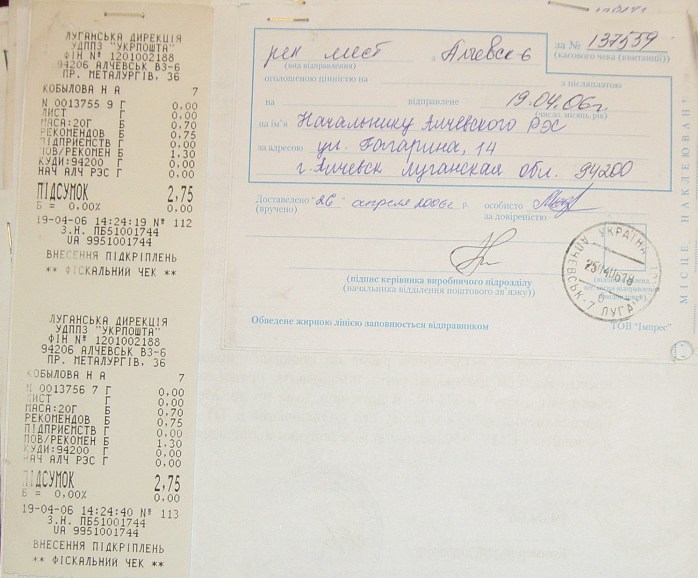 ЛУГАНСЬКА ДИРЕКЦІЯ
УДППЗ "УКРПОШТА"
ФІН № 1201002188
94206 АЛЧЕВСЬК ВЗ-6
ПР. МЕТАЛУРГІВ, 36
КОБЫЛОВА Н А 7
N 0013755 9 Г 0.00
ЛИСТ Г 0.00
МАСА:20Г Б 0.70
РЕКОМЕНДОВ Б 0.75
ПІДПРИЄМСТВ Г 0.00
ПОВ/РЕКОМЕН Б 1.30
КУДИ:94200 Г 0.00
НАЧ АЛЧ РЭС Г 0.00
ПІДСУМОК 2,75
Б = 0.00% 0.00
19-04-06 14:24:19 № 112
З.Н. ПБ51001744
UA 9951001744
ВНЕСЕННЯ ПІДКРІПЛЕНЬ
** ФІСКАЛЬНИЙ ЧЕК **
ЛУГАНСЬКА ДИРЕКЦІЯ
УДППЗ "УКРПОШТА"
ФІН № 1201002188
94206 АЛЧЕВСЬК ВЗ-6
ПР. МЕТАЛУРГІВ, 36
КОБЫЛОВА Н А 7
N 0013756 7 Г 0.00
ЛИСТ Г 0.00
МАСА:20Г Б 0.70
РЕКОМЕНДОВ Б 0.75
ПІДПРИЄМСТВ Г 0.00
ПОВ/РЕКОМЕН Б 1.30
КУДИ:94200 Г 0.00
НАЧ АЛЧ РЭС Г 0.00
ПІДСУМОК 2,75
Б = 0.00% 0.00
19-04-06 14:24:40 № 113
З.Н. ПБ51001744
UA 9951001744
ВНЕСЕННЯ ПІДКРІПЛЕНЬ
** ФІСКАЛЬНИЙ ЧЕК **
рек лист з Алчевск-6 за № 137559
(вид відправлення) (касового чека (квитанції))
оголошеною цінністю на з післяплатою
на відправлене 19.04.06г
(число, місяць, рік)
на ім'я Начальнику Алчевского РЭС
за адресою ул. Гагарина, 14
г. Алчевск Луганская обл. 94200
Доставлено "26" апреля 2006 р. особисто
(вручено) за довіреністю
(підпис керівника виробничого підрозділу
(начальника відділення поштового зв'язку))
Обведене жирною лінією заповнюється відправником
ТОВ "Імпрес"
МІСЦЕ НАКЛЕЮВАН
УКРАЇНА
АЛЧЕВСЬК-7 ЛУГАН